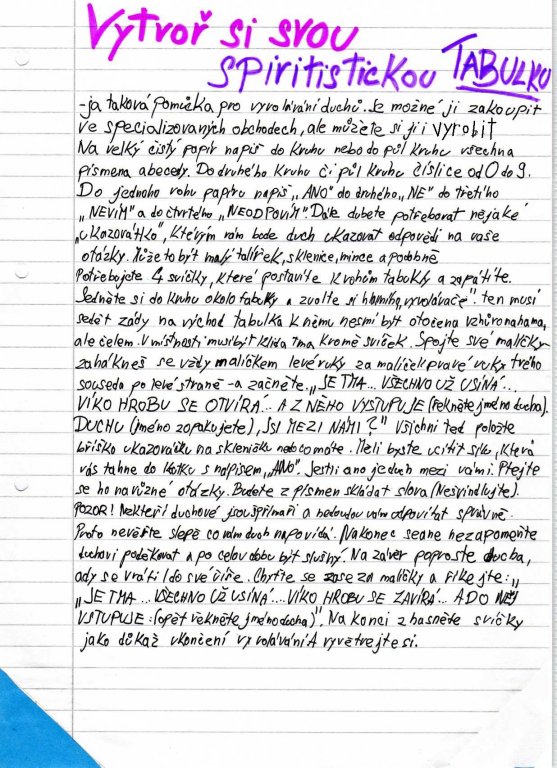 Vytvoř si svou
SPIRITISTICKOU TABULKU
-ja taková pomůcka pro vyvolávání duchů. Je možné ji zakoupit
ve specializovaných obchodech, ale můžete si ji i VYROBIT
Na velký čistý papír napiš do kruhu nebo do půl kruhu všechna
písmena abecedy. Do druhého kruhu či půl kruhu číslice od 0 do 9.
Do jednoho rohu papíru napiš „ANO" do druhého „NE" do třetího
„NEVÍM" a do čtvrtého „NEODPOVÍM" Dále dubete potřebovat nějaké
„ukazovátko", kterým vám bode duch ukazovat odpovědi na vaše
otázky. Může to být malý talířek, sklenice, mince a podobně
Potřebujete 4 svíčky, které postavíte k rohům tabukly a zapálíte.
Sedněte si do kruhu okolo tabulky a zvolte si hlavního „vyvolávače". ten musí
sedět zády na východ tabulka k němu nesmí být otočena vzhůro nahama,
ale čelem. V místnosti musí být klid a tma kromě svíček. Spojte své malíčky
zaháknes se vždy malíčkem levé ruky za malíček pravé ruky tvého
souseda po levé straně - a začněte. „JE TMA... VŠECHNO UŽ USÍNÁ...
VÍKO HROBU SE OTVÍRÁ... A Z NĚHO VYSTUPUJE (řekněte jméno ducha).
DUCHU (jméno zopakujete), JSI MEZI NÁMI?" Všichni teď položte
bříško ukazováčku na skleničku nebo co máte. Měli byste ucítit sílu, která
vás táhne do koutku s nápisem „ANO". Jestli ano je duch mezi vámi. Ptejte
se ho na různé otázky. Budete z písmen skládat slova (Nešvindlujte).
POZOR! Někteří duchové jsou šprýmaři a nebudou vám odpovídat správně.
Proto nevěřte slepě co vám duch napovídá. Nakonec seane nezapomeňte
duchovi poděkovat a po celou dobu být slušný. Na závěr poproste ducha,
ady se vrátil do své říše. Chyťte se zase za malíčky a říkejte: „
„JE TMA... VŠECHNO UŽ USÍNÁ... VÍKO HROBU SE ZAVÍRÁ... A DO NĚJ
VSTUPUJE: (opět řekněte jméno ducha)". Na konci zhasněte svíčky
jako důkaz ukončení vyvolávání A vyvětrejte si.